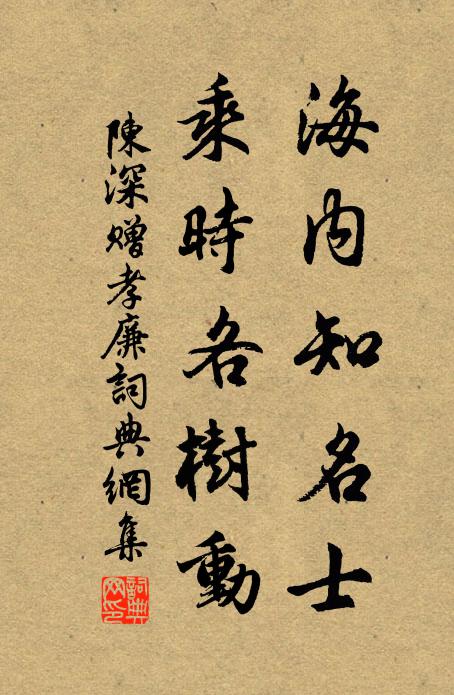 海內知名士
乘時各樹動
陳深贈孝廉詞典網集
詞典网印